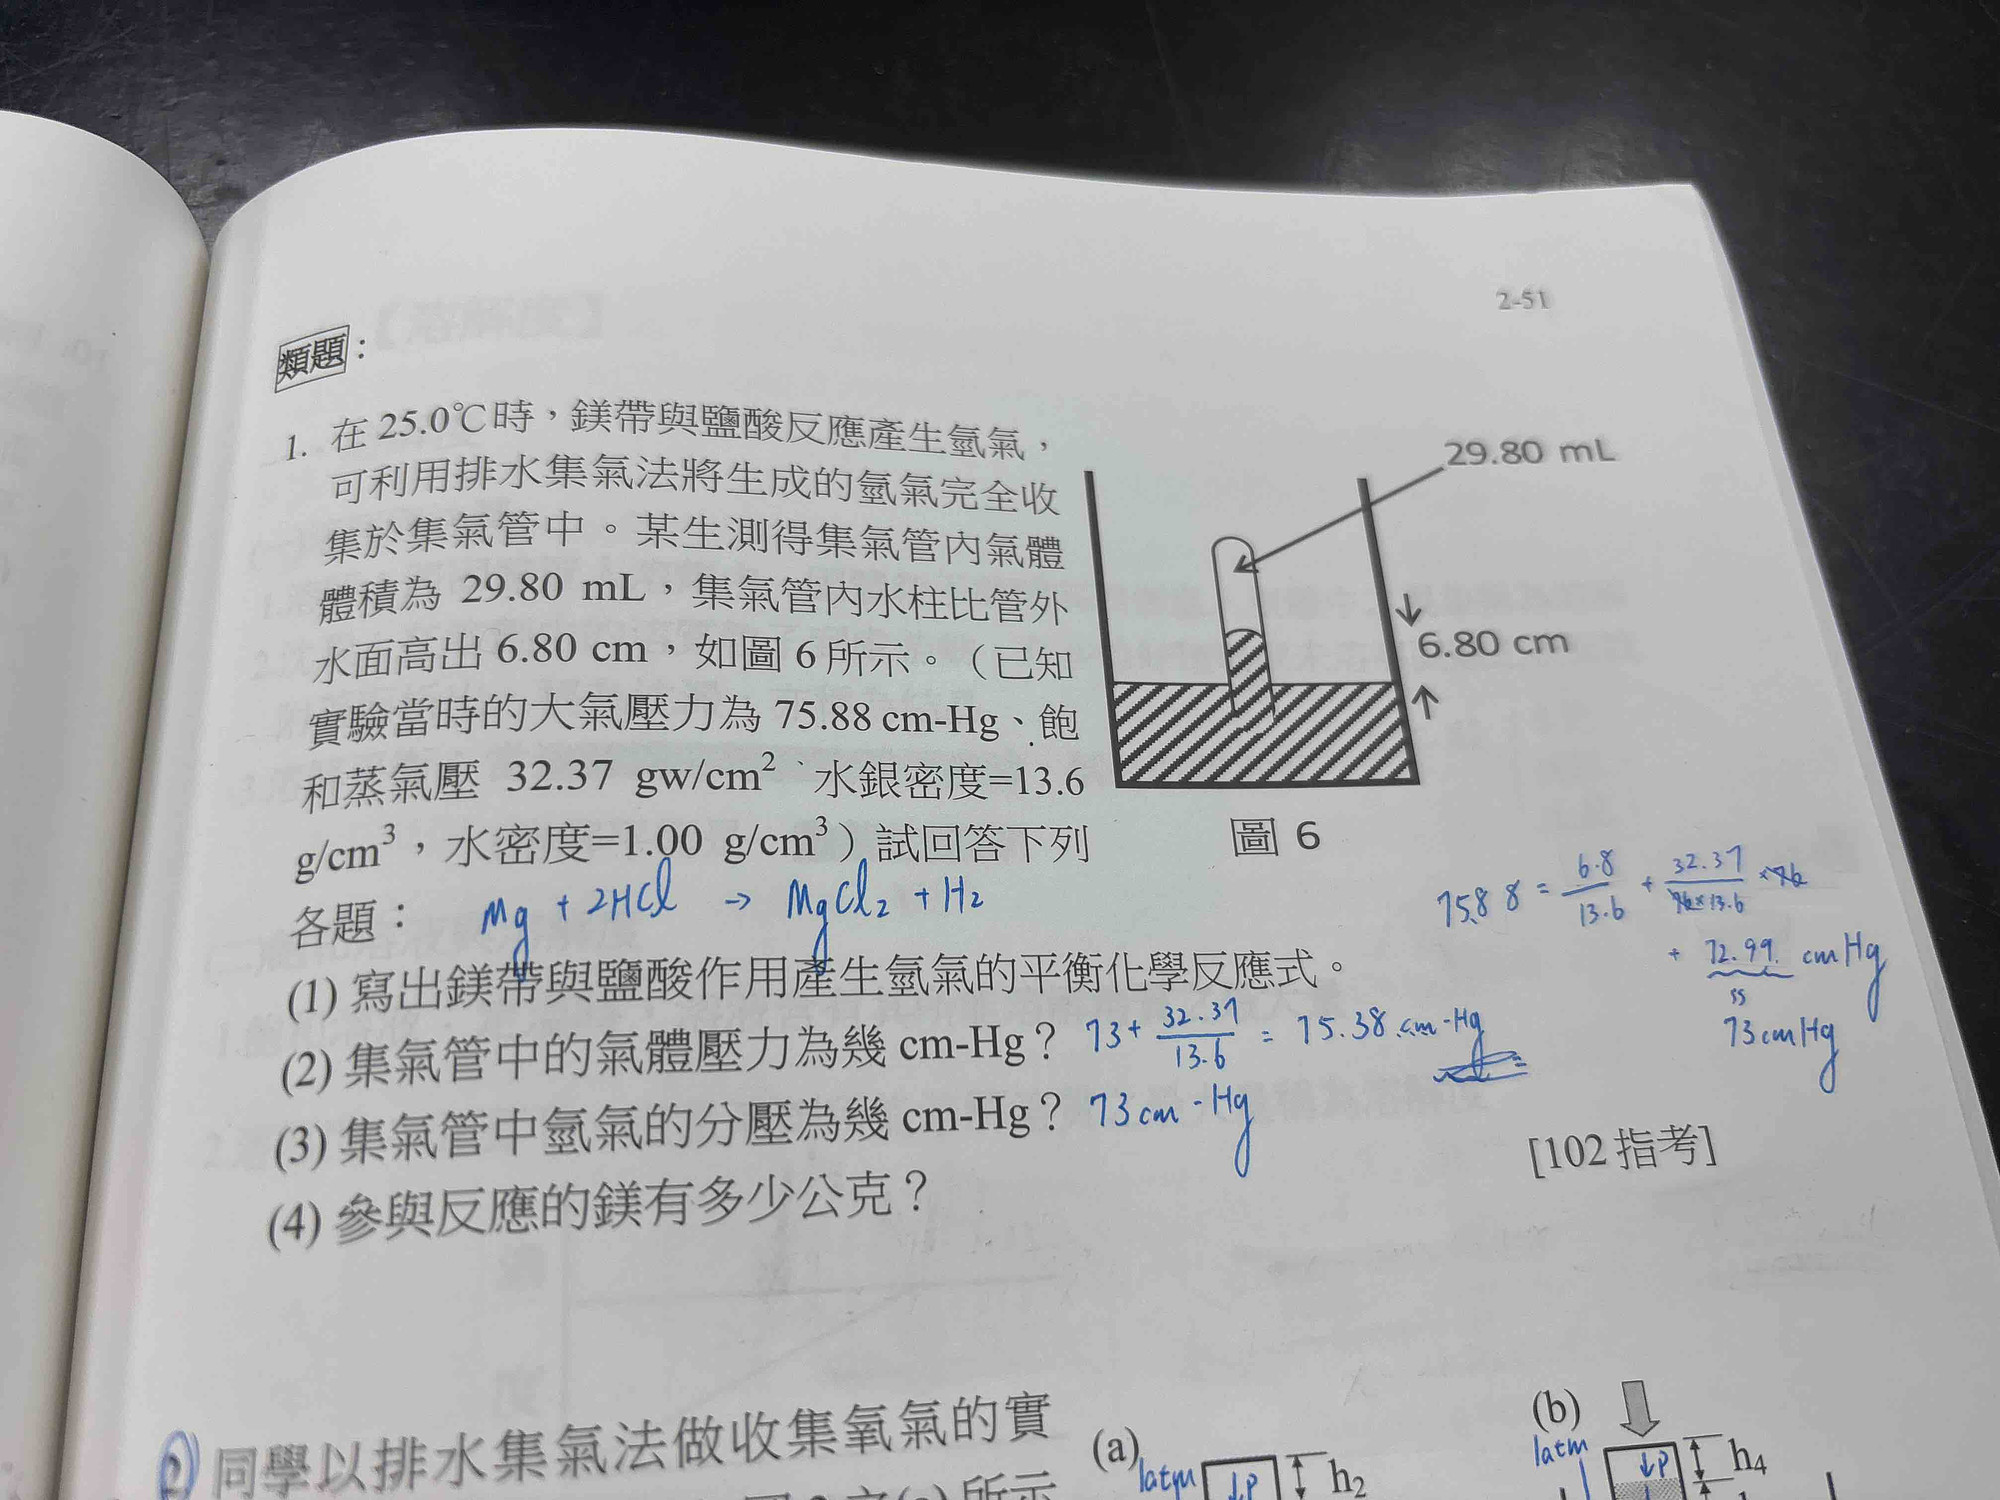 2-51
類題：
1. 在 25.0℃時，鎂帶與鹽酸反應產生氫氣，
可利用排水集氣法將生成的氫氣完全收
集於集氣管中。某生測得集氣管內氣體
體積為 29.80 mL，集氣管內水柱比管外
水面高出 6.80 cm，如圖 6 所示。（已知
實驗當時的大氣壓力為 75.88 cm-Hg、飽
和蒸氣壓 32.37 gw/cm²、水銀密度=13.6
g/cm³，水密度=1.00 g/cm³）試回答下列
各題：
29.80 mL
6.80 cm
圖 6
Mg + 2HCl → MgCl₂ + H₂
75.88 = 6.8/13.6 + 32.37/76×13.6 ×76
+ 72.99 cmHg
73cmHg
(1) 寫出鎂帶與鹽酸作用產生氫氣的平衡化學反應式。
(2) 集氣管中的氣體壓力為幾 cm-Hg？ 73+ 32.37/13.6 = 75.38 cm-Hg
(3) 集氣管中氫氣的分壓為幾 cm-Hg？ 73cm-Hg
(4) 參與反應的鎂有多少公克？
[102 指考]
2 同學以排水集氣法做收集氧氣的實
所示
(a)
1atm
↓P
h₂
(b)
1atm
↓P
h₄